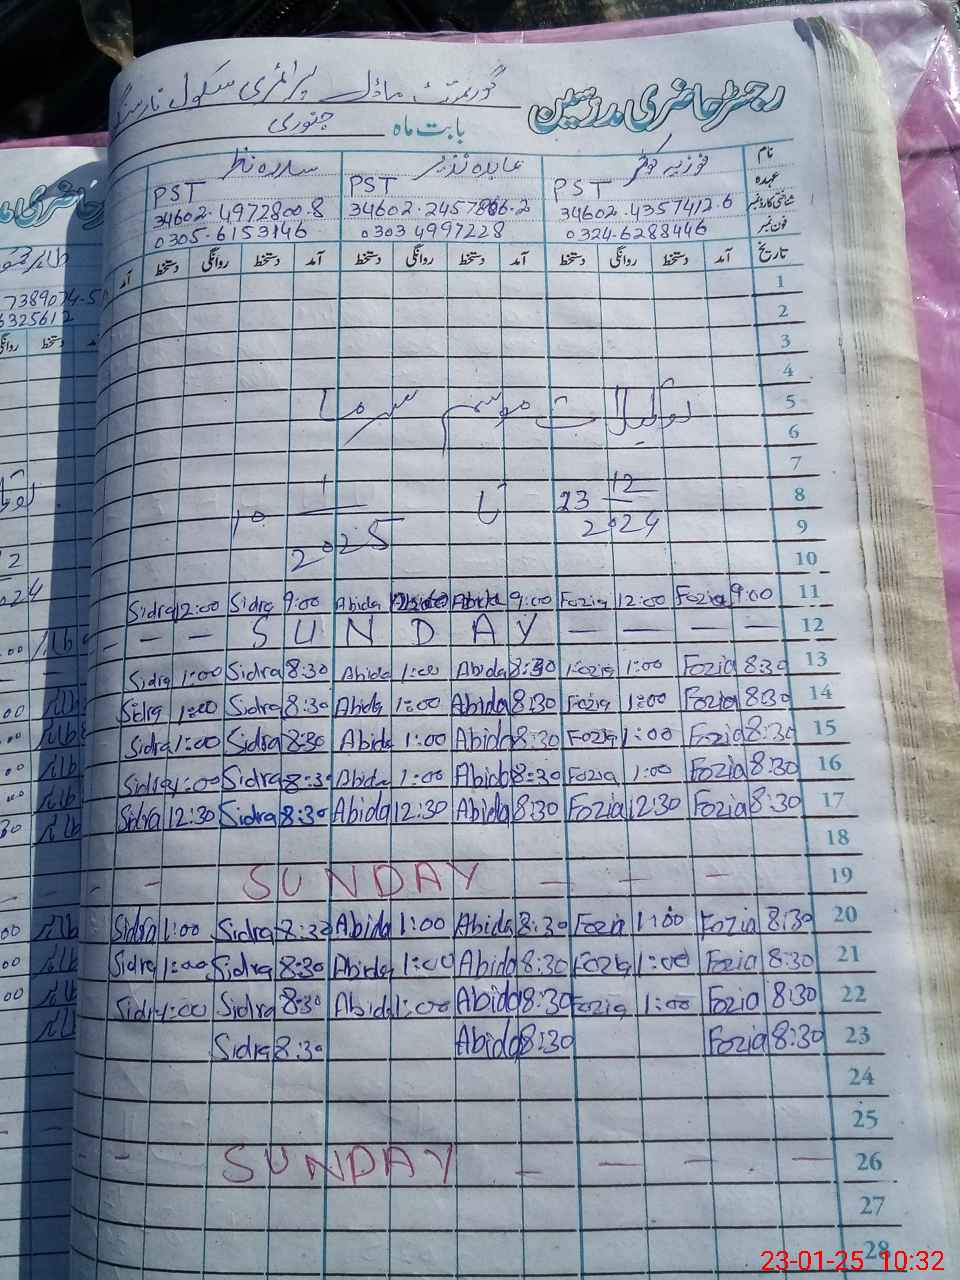 رجسٹر حاضری مدرسین گورنمنٹ ماڈل پرائمری سکول
بابت ماہ جنوری
نام فوزیہ عابدہ نذیر سدرہ نظر
عہدہ PST PST PST
شناختی کارڈ نمبر 34602-4357412-6 34602-2457866-2 34602-4972800-8
فون نمبر 0324-6288446 0303 4997228 0305-6153146
تاریخ آمد دستخط روانگی دستخط آمد دستخط روانگی دستخط آمد دستخط روانگی دستخط آمد
1
2
3
4
5 تعطیلات موسم سرما
6
7
8 23 12 تا 10 1
9 2024 2025
10
11 9:00 Fozia 12:00 Fozia 9:00 Abida Abida 9:00 Sidra 12:00 Sidra
12 — — SUNDAY — — — —
13 8:30 Fozia 1:00 Fozia 8:30 Abida 1:00 Abida 8:30 Sidra 1:00 Sidra
14 8:30 Fozia 1:00 Fozia 8:30 Abida 1:00 Abida 8:30 Sidra 1:00 Sidra
15 8:30 Fozia 1:00 Fozia 8:30 Abida 1:00 Abida 8:30 Sidra 1:00 Sidra
16 8:30 Fozia 1:00 Fozia 8:30 Abida 1:00 Abida 8:30 Sidra 1:00 Sidra
17 8:30 Fozia 12:30 Fozia 8:30 Abida 12:30 Abida 8:30 Sidra 12:30 Sidra
18
19 — SUNDAY — — —
20 8:30 Fozia 1:00 Fozia 8:30 Abida 1:00 Abida 8:30 Sidra 1:00 Sidra
21 8:30 Fozia 1:00 Fozia 8:30 Abida 1:00 Abida 8:30 Sidra 1:00 Sidra
22 8:30 Fozia 1:00 Fozia 8:30 Abida 1:00 Abida 8:30 Sidra 1:00 Sidra
23 8:30 Fozia 8:30 Abida 8:30 Sidra
24
25
26 — — SUNDAY — — — —
27
28
23-01-25 10:32